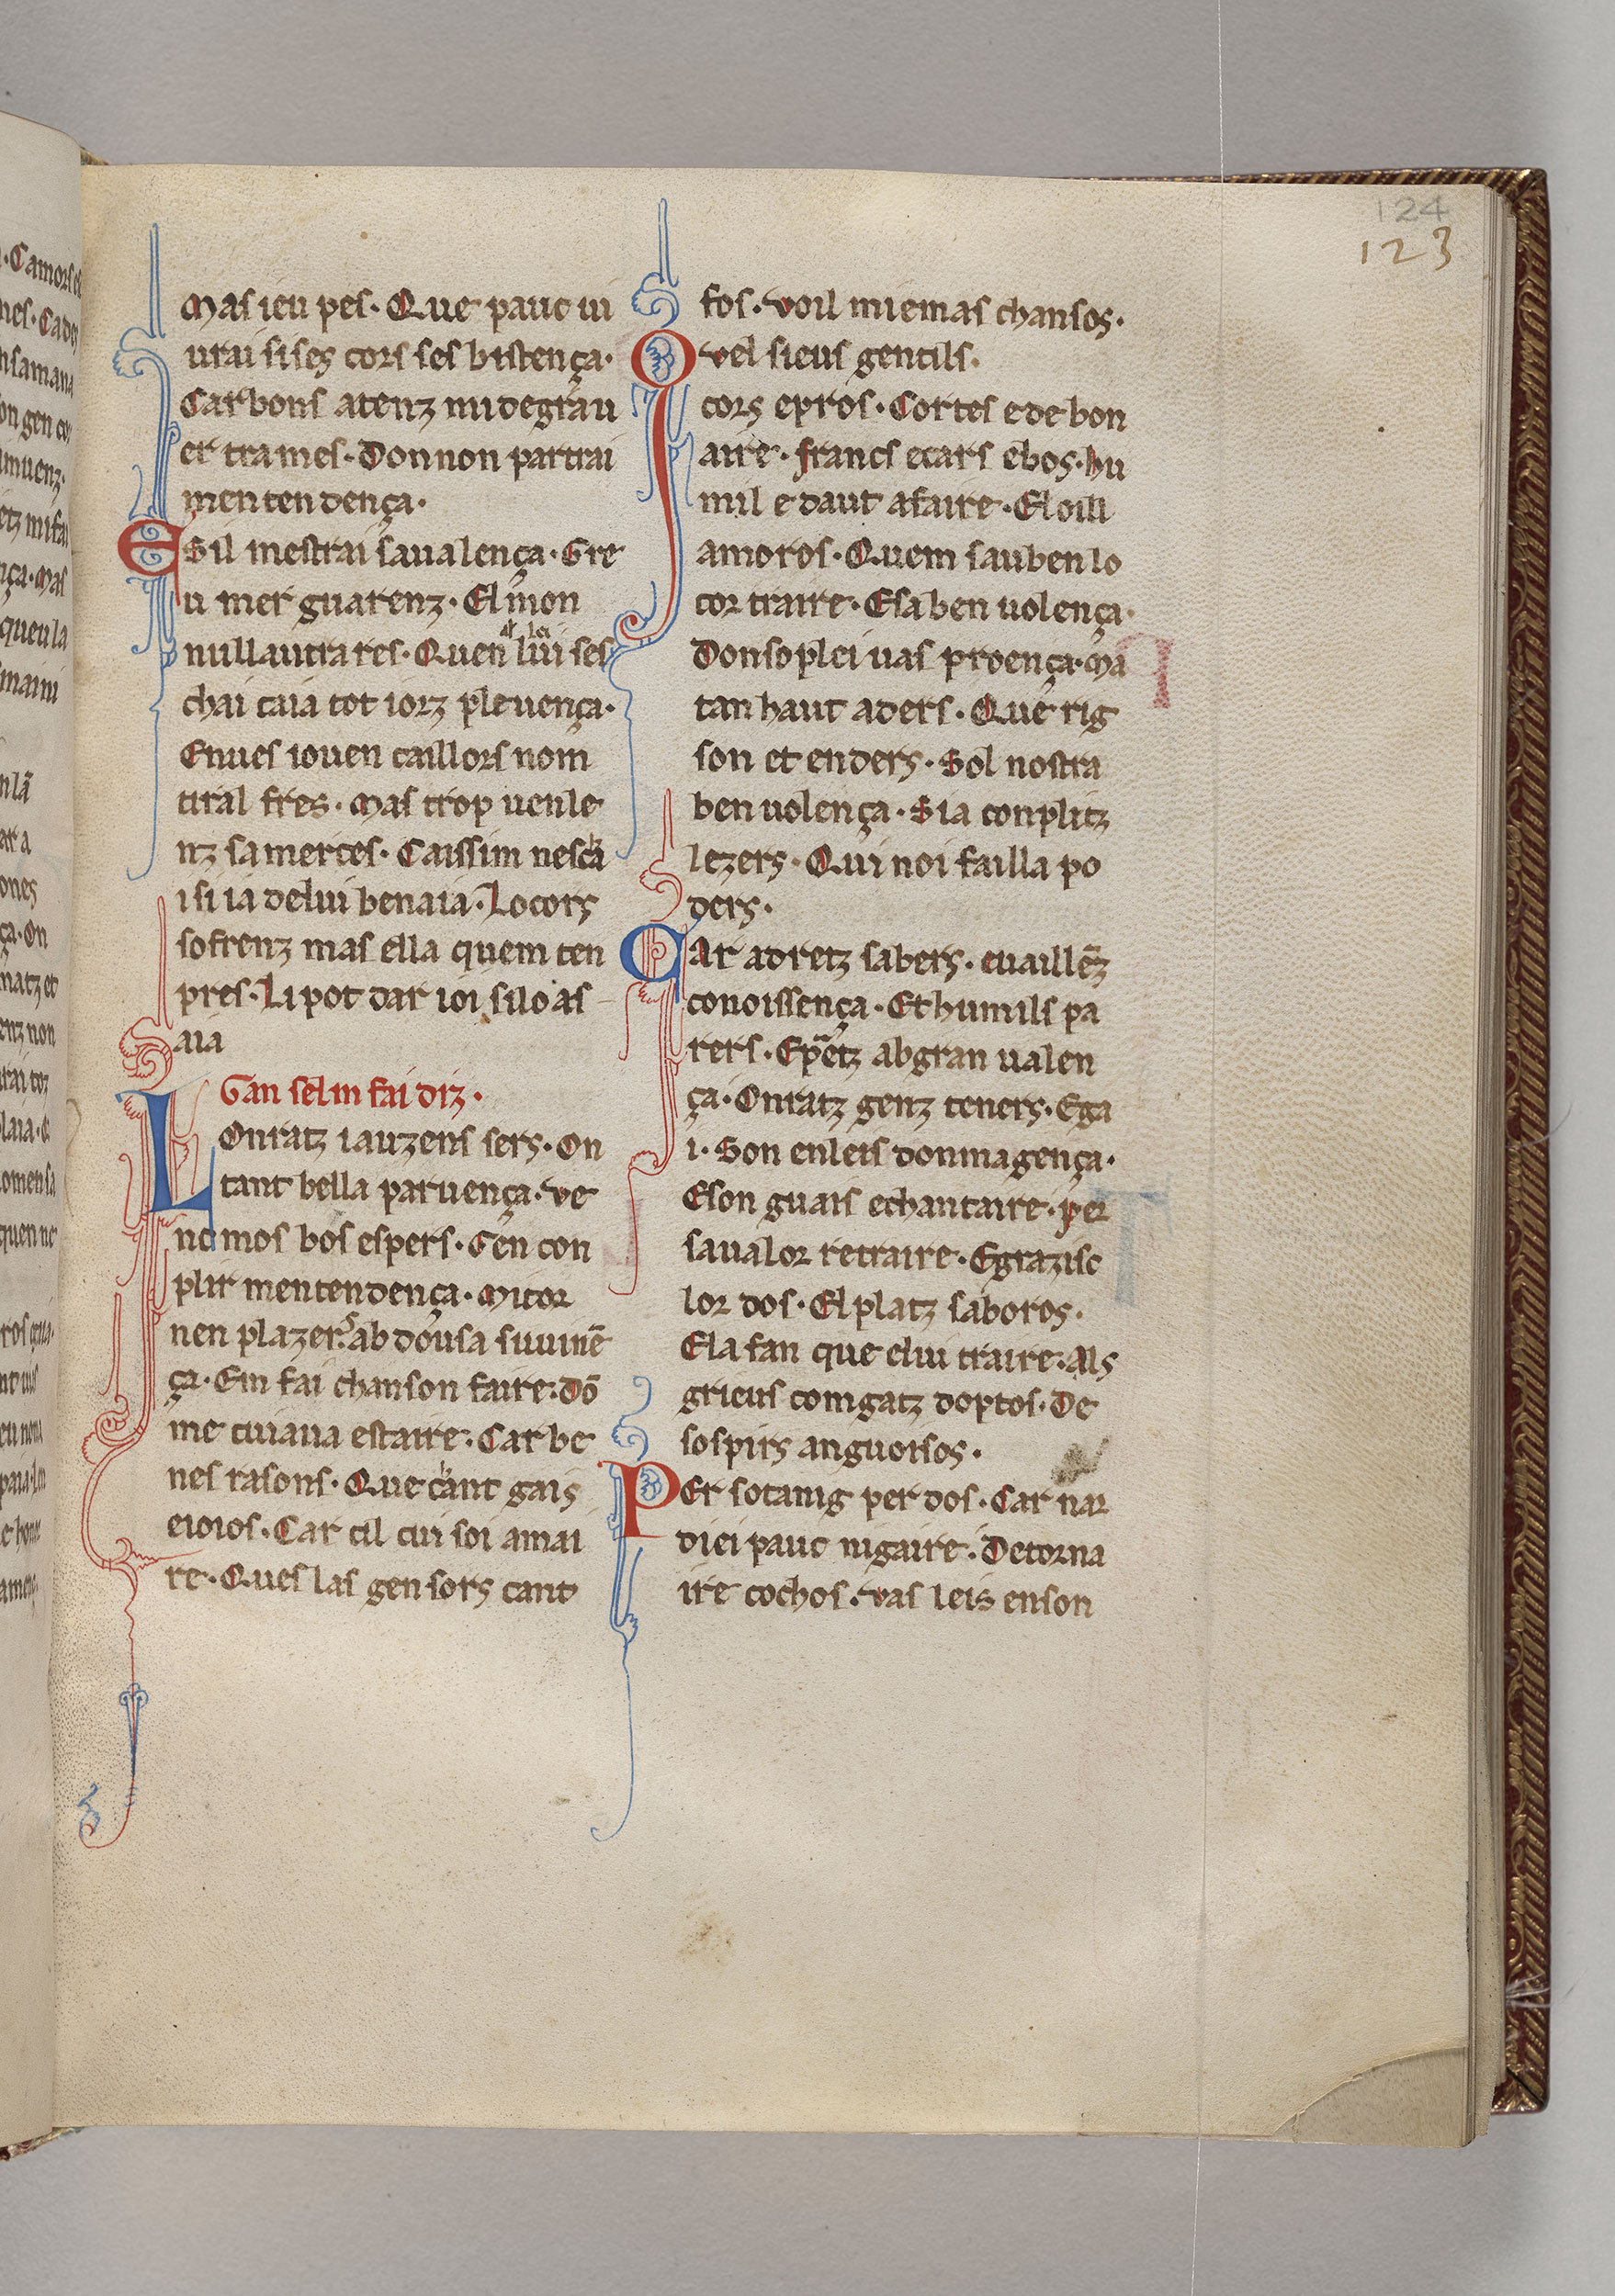 124
123
Mas ieu pes· Que pauc ui
urai si ses cors ses bistença·
Car bons atenz mi degrau
er tra mes· Don non partrai
men ten dença·
E Sil mestrai sa ualença· Gre
u mer guarenz· El mon
nullautra res· Quen lui ses
chai caia tot iorz pleuença·
Enues iouen caillors nom
tiral fres· Mas trop uen le
nz sa merces· Caissim nescha
i si ia de lui ben aia· Lo cors
sofrenz mas ella quem ten
pres· Li pot dar ioi si lo as
aia
Gan selm fai diz·
L Onratz iauzens sers· On
tant bella paruença· Ve
no mos bos espers· Cen con
plir mentendença· Mi tor
nen plazers· ab dousa suuinē
ça· Em fai chanson faire· dō
me cuiaua estaire· Car be
nes rasons· Que chant gais
eioios· Car cil cui soi amai
re· Ques las gensors cant
fos· Voil miemas chansos·
Q vel sieus gentils·
cors epros· Cortes e de bon
aire· francs ecars ebos· hu
mil e daut afaire· El oill
amoros· Quem sauben lo
cor traire· E sa ben uolença·
Don soplei uas proença· Ma
tan haut aders· Que rig
son et enders· Sol nostra
ben uolença· Sia conplitz
lezers· Qui noi failla po
ders·
C ar adretz sabers· euaillēz
conoissença· Et humils pa
rers· E p̄etz ab gran ualen
ça· Onratz genz teners· E ga
i· Son en leis don magença·
E son guais e chantaire· per
sa ualor retraire· E grazisc
lor dos· El platz saboros·
E la fan que elui traire· Als
grieus comgatz doptos· De
sospirs anguoisos·
P Er so tanig per dos· Car nar
diei pauc nigaire· De torna
ire cochos· vas leis en son